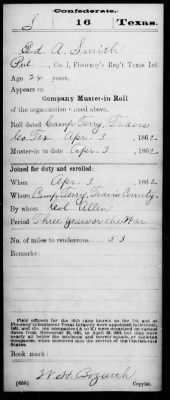 Confederate.
S 16 Texas.
Ed A. Smith
Pvt., Co. I, Flournoy's Reg't Texas Inf.
Age 24 years.
Appears on
Company Muster-in Roll
of the organization named above.
Roll dated Camp Terry, Travis
Co. Tex Apr. 3, 1862.
Muster-in to date Apr. 3, 1862.
Joined for duty and enrolled:
When Apr. 3, 1862.
Where Camp Terry, Travis County.
By whom Col. Allen
Period Three years or the War
No. of miles to rendezvous 53
Remarks:
Book mark:
W. H. Bozarth
(656) Copyist.